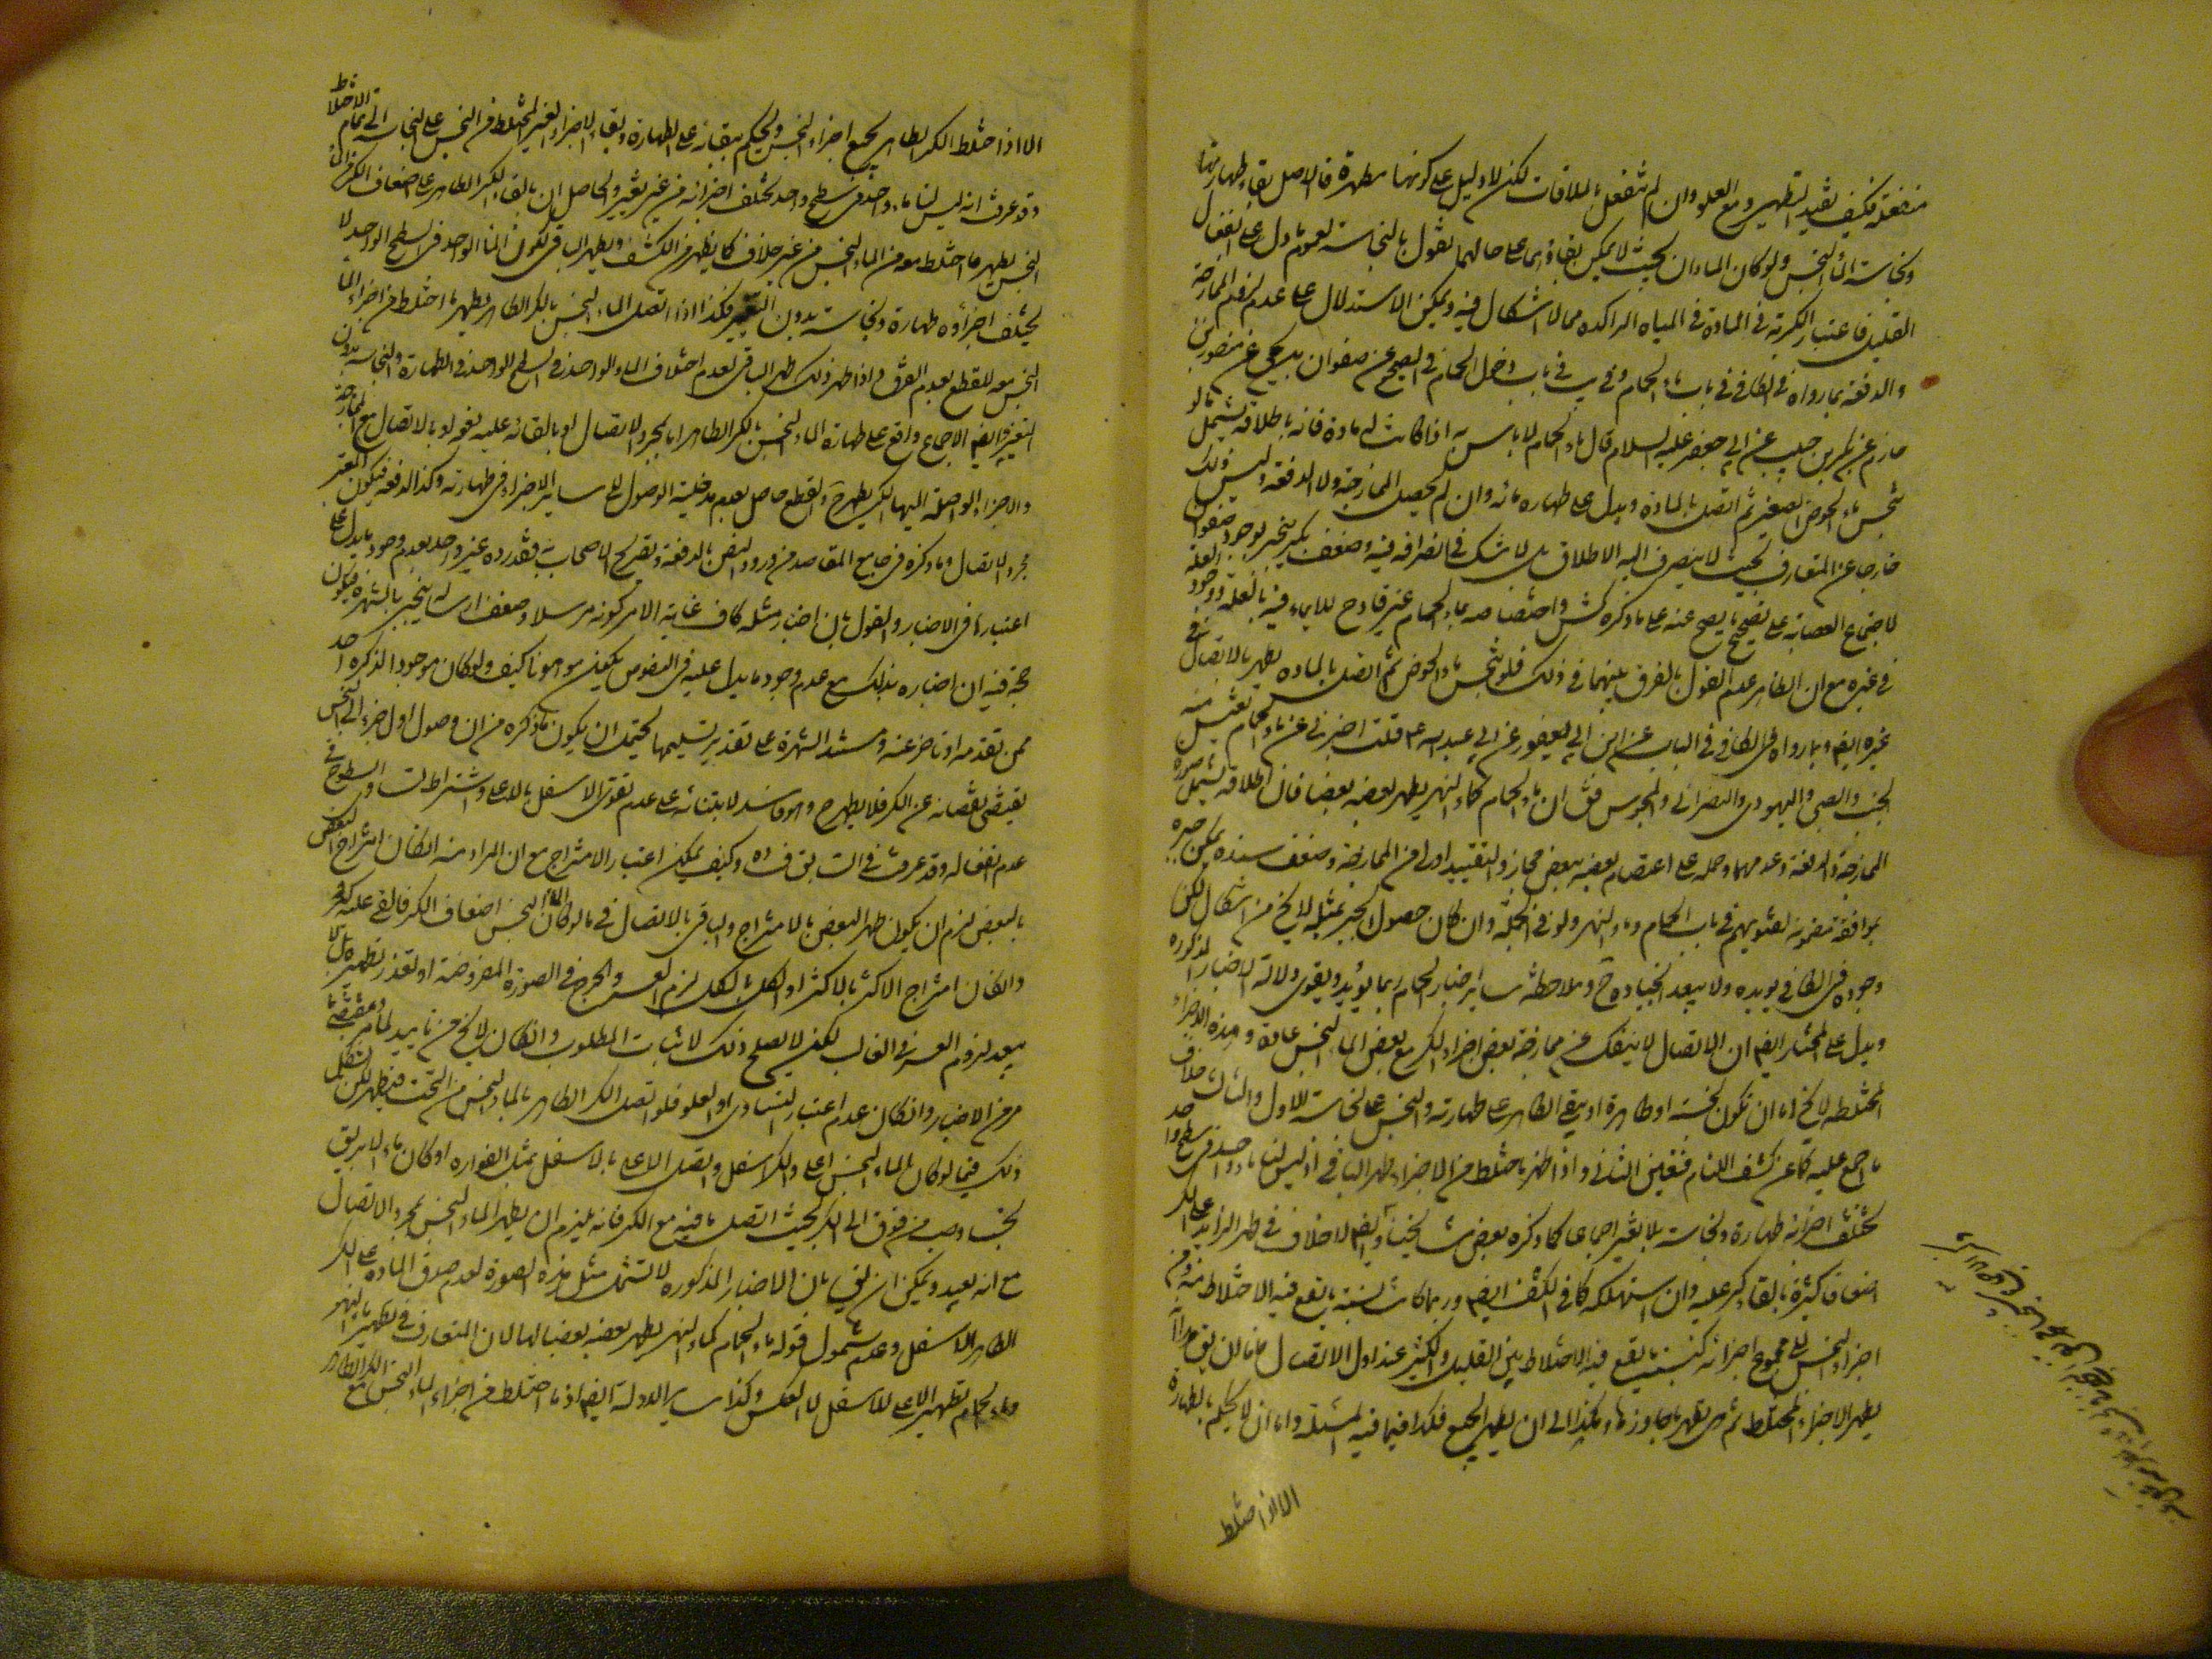 منفعلة فكيف تفيد التطهير ومع العلو وان لم تنفعل بالملاقات لكن لا دليل على كونها مطهرة فالاصل بقاء طهارتها
ونجاسة الماء النجس ولو كان الماءان بحيث لا يمكن بقاؤهما على حالهما نقول بالنجاسة لعموم ما دل على انفعال
القليل فاعتبار الكرية في المادة في المياه الراكده مما لا اشكال فيه ويمكن الاستدلال على عدم لزوم الممازجة
والدفعة بما رواه في الكافي في باب ماء الحمام وفي يب في باب دخول الحمام في الصحيح عن صفوان بن يحيى عن منصور بن
حازم عن بكر بن حبيب عن ابي جعفر عليه السلام قال ماء الحمام لا باس به اذا كانت له مادة فانه باطلاقه يشمل ما لو
نجس ماء الحوض الصغير ثم اتصل بالمادة ويدل على طهارة مائه وان لم يحصل الممازجة ولا الدفعة وليس ذلك
خارجا عن المتعارف بحيث لا ينصرف اليه الاطلاق بل لا شك في انصرافه فيه وضعف بكر ينجبر بوجود صفوان
لاجماع العصابة على تصحيح ما يصح عنه على ما ذكره كش واختصاصه بماء الحمام غير قادح للايماء فيه بالعلة ووجود العلة
في غيره مع ان الظاهر عدم القول بالفرق بينهما في ذلك فلو نجس ماء الحوض ثم اتصل بالمادة يطهر بالاتصال في
غيره ايضا وبما رواه في الكافي في الباب عن ابن ابي يعفور عن ابي عبد الله ع قلت اخبرني عن ماء الحمام يغتسل منه
الجنب والصبي واليهودي والنصراني والمجوسي فق ان ماء الحمام كماء النهر يطهر بعضه بعضا فان اطلاقه يشمل صورة
الممازجة والدفعة وعدمهما وحمله على اعتصام بعضه ببعض مجاز والتقييد اولى من الممازجة وضعف سنده يمكن جبره
بموافقة مضمونه لفتويهم في باب الحمام وماء النهر ولو في الجملة وان كان حصول الجبر بمثله لا يخ من اشكال لكن
وجوده في الكافي يويده ولا يبعد انجباره ح وملاحظة ساير اخبار الحمام ربما يؤيد ويقوى دلالة الاخبار المذكوره
ويدل على المختار ايضا ان الاتصال لا ينفك عن ممازجة بعض اجزاء الكر مع بعض الماء النجس عادة وهذه الاجزاء
المختلطه لا يخ اما ان تكون نجسة او طاهرة او يبقى الطاهر على طهارته والنجس على نجاسته للاول والثالث خلاف
ما اجمع عليه كما عن كشف اللثام فتعين الثاني واذا طهر ما اختلط من الاجزاء طهر الباقي اذ ليس لنا ماء واحد في سطح واحد
تختلف اجزائه طهارة ونجاسة بلا تغير اجماعا كما ذكره بعض مشايخنا وايضا لا خلاف في طهر الزايد على الكر
اضعافا كثيرة بالقاء كر عليه وان استهلكه كما في الكشف ايضا وربما كانت نسبة ما يقع فيه الاختلاط منه ومن
اجزاء النجس الى مجموع اجزائه كنسبة ما يقع فيه الاختلاط بين القليل والكثير عند اول الاتصال فاما ان يق هناك
يطهر الاجزاء المختلط ثم هي تطهر ما جاوزها وهكذا الى ان يطهر الجميع فكذا فيما فيه المسئلة واما ان لا يحكم بالطهارة
الا اذا اختلط
الا اذا اختلط الكر الطاهر بجميع اجزاء النجس ويحكم ببقائه على الطهارة وبقاء الاجزاء الغير المختلط من النجس على النجاسة الى تمام الاختلاط
وقد عرفت انه ليس لنا ماء واحد في سطح واحد تختلف اجزائه من غير تغيير والحاصل ان بالقاء الكر الطاهر على اضعاف الكر من الماء
النجس يطهر ما اختلط معه من الماء النجس من غير خلاف كما يظهر من الكشف ويطهر الباقي لكون الماء الواحد في السطح الواحد لا
يختلف اجزاؤه طهارة ونجاسة بدون التغير فكذا اذا اتصل الماء النجس بالكر الطاهر يطهر ما اختلط من اجزاء الماء
النجس معه للقطع بعدم الفرق واذا طهر ذلك طهر الباقي لعدم اختلاف الماء الواحد في السطح الواحد في الطهارة والنجاسة بدون
التغير وايضا الاجماع واقع على طهارة الماء النجس بالكر الطاهر اما بمجرد الاتصال او بالقائه عليه نحو او بالاتصال مع الممازجة
والاجزاء الواصلة اليها الكر يطهر ح والقطع حاصل بعدم مدخلية الوصول الى ساير الاجزاء في طهارته وكذا الدفعة فيكون المعتبر
مجرد الاتصال وما ذكره في جامع المقاصد من ورود النص بالدفعة وتصريح الاصحاب بها فقد رده غير واحد بعدم وجود ما يدل على
اعتبارها في الاخبار والقول بان اخبار مثله كاف غاية الامر كونه مرسلا وضعف ارساله ينجبر بالشهرة فيكون
حجة فيه ان اخباره بذلك مع عدم وجود ما يدل عليه في النصوص يكون موهونا كيف ولو كان موجودا لذكره احد
ممن تقدمه او تاخر عنه ومستند الشهرة على تقدير تسليمها يحتمل ان يكون ما ذكره من ان وصول اول جزء الى النجس
يقتضي نقصانه عن الكر فلا يطهر ح وهو فاسد لابتنائه على عدم تقوى الاسفل بالاعلى واشتراط تساوى السطوح في
عدم انفعاله وقد عرفت في السابق فساده وكيف يمكن اعتبار الامتزاج مع ان المراد منه ان كان امتزاج البعض
بالبعض لزم ان يكون طهر البعض بالامتزاج والباقي بالاتصال في ما لو كان الماء النجس اضعاف الكر فالقي عليه كر
وان كان امتزاج الاكثر بالاكثر او الكل بالكل لزم العسر والحرج في الصورة المفروضة او تعذر تطهيره بل لا
يبعد لزوم العسر في الغالب لكن لا يصلح ذلك لاثبات المطلوب وان كان لا يخ من تاييد لما مر ومقتضى ما
مر من الاخبار وان كان عدم اعتبار التساوى او العلو فلو اتصل الكر الطاهر بالماء النجس من التحت فيطهر لكن يشكل
ذلك فيما لو كان الماء النجس اعلى والكر اسفل واتصل الاعلى بالاسفل بمثل الفواره او كان ماء الابريق
نجسا وصب من فوق الى الكر بحيث اتصل ما فيه مع الكر فانه يلزم ان يطهر الماء النجس بمجرد الاتصال
مع انه بعيد ويمكن ان يق بان الاخبار المذكوره لا تشمل مثل هذه الصورة لعدم صدق المادة على الكر
الطاهر الاسفل وعدم شمول قوله ماء الحمام كماء النهر يطهر بعضه بعضا لها لان المتعارف في تطهير ماء النهر
وماء الحمام تطهير الاعلى للاسفل لا العكس وكذا ساير الادلة ايضا اذ ما اختلط من اجزاء الماء النجس مع الكر الطاهر